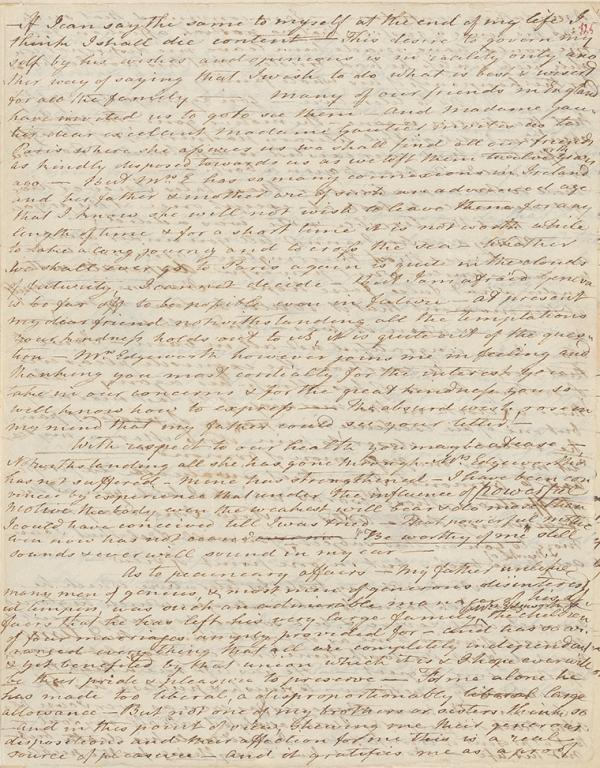 If I can say the same to myself at the end of my life I
think I shall die content — This desire to govern my
self by his wishes and opinions is in reality only ano
ther way of saying that I wish to do what is best & wisest
for all the family — Many of our friends in England
have invited us to go to see them — And Madame Gau
tier dear excellent Madame Gautier invites us to
Paris where she assures us we shall find all our friends
as kindly disposed towards us as we left them twelve years
ago — But Mrs E has so many connexions in Ireland
and her father & mother are of such an advanced age
that I know she will not wish to leave them for any
length of time & for a short time it is not worth while
to take a long journey and to cross the sea — Whether
we shall ever go to Paris again is quite in the clouds
of futurity, I cannot decide — But I am afraid Geneva
is too far off to be possible even in future — at present
my dear friend notwithstanding all the temptations
your kindness holds out to us, it is quite out of the ques
tion — Mrs Edgeworth however joins me in feeling and
thanking you most cordially for the interest you
take in our concerns & for the great kindness you so
well know how to express — The absurd wish rose in
my mind that my father could see your letter. —
With respect to our health you may be at ease —
Notwithstanding all she has gone through Mrs Edgeworth
has not suffered — Mine has strengthened — I have been con
vinced by experience that under the influence of powerful
motive the body even the weakest will bear & do more than
I could have conceived till I was tried — That powerful motive
even now has not ceased Be worthy of me still
sounds & ever will sound in my ear —
As to pecuniary affairs — my father unlike
many men of genius, & most men of generous disinterest
ed tempers, was such an admirable manager of his af
fairs that he has left his very large family, the children
of four marriages amply provided for — and has so ar
ranged every thing that all are completely independant
& yet benefited by that union which it is & I hope ever will
be their pride & pleasure to preserve — To me alone he
has made too liberal, a disproportionably liberal large
allowance — But not one of my brothers or sisters think so
— and in this point of view, shewing me their generous
dispositions and their affection for me this is a real
source of pleasure — and it gratifies me as a proof